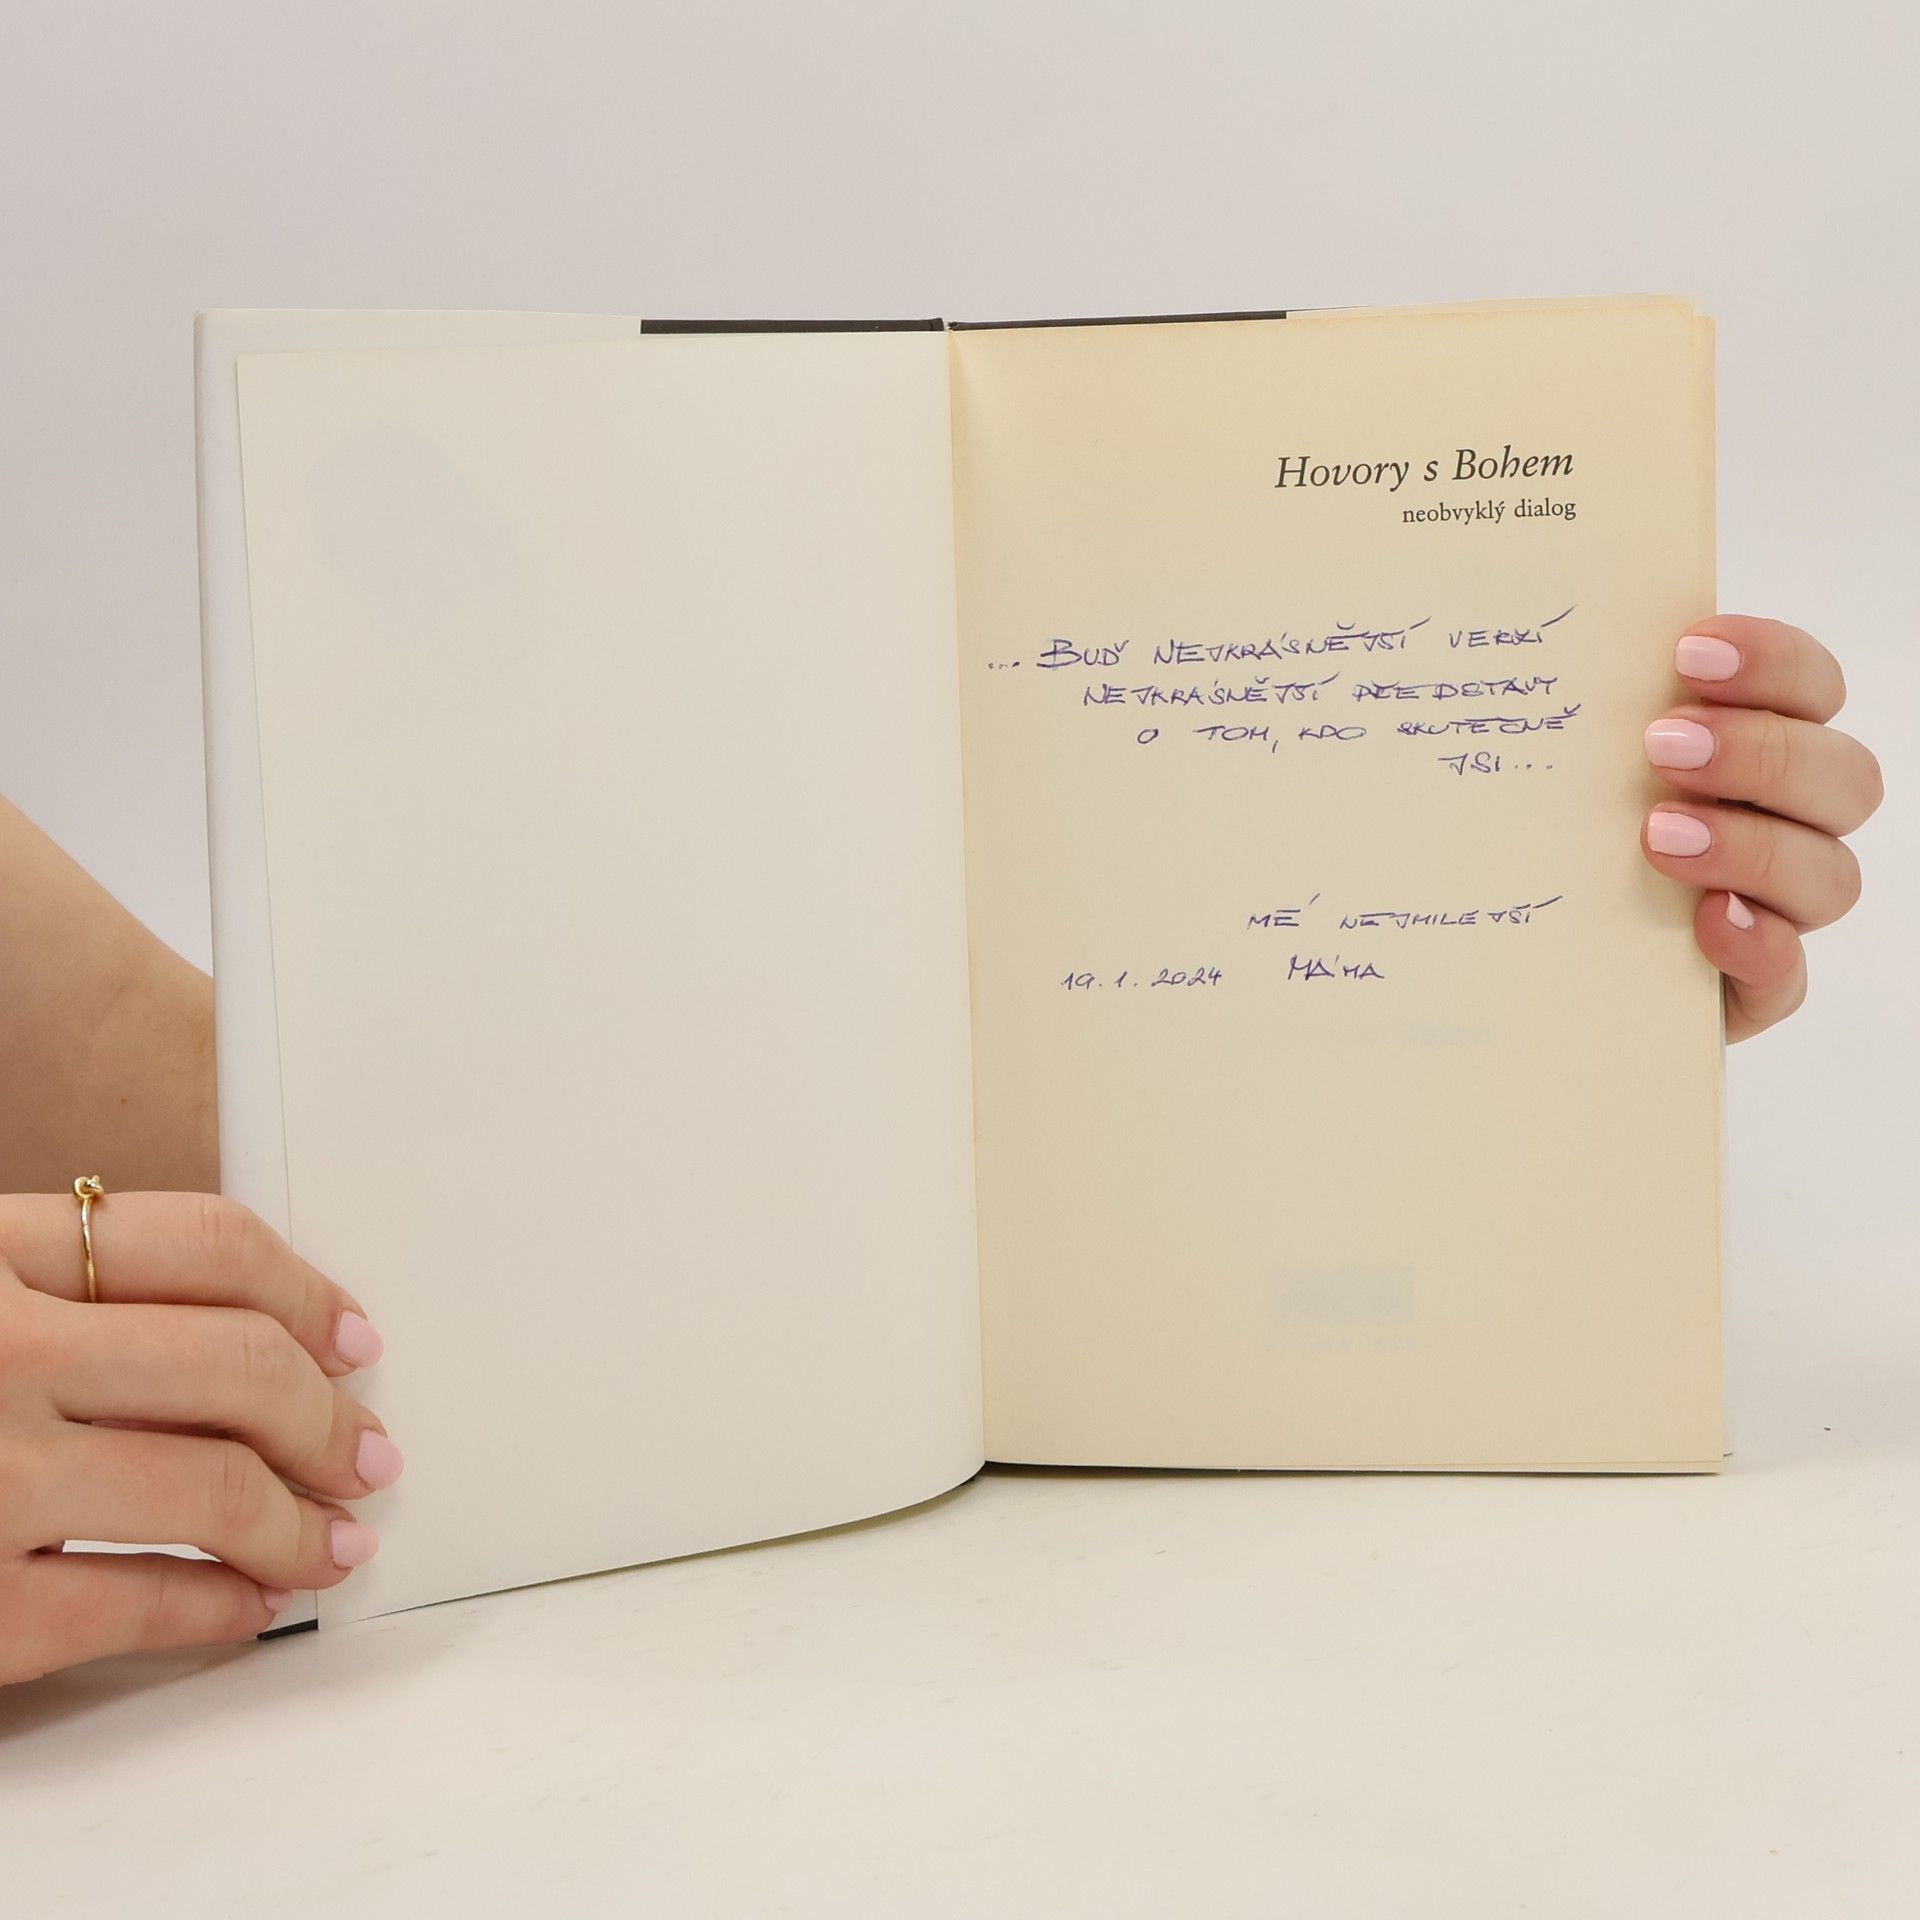 Hovory s Bohem
neobvyklý dialog
... BUĎ NEJKRÁSNĚJŠÍ VERZÍ
NEJKRÁSNĚJŠÍ PŘEDSTAVY
O TOM, KDO SKUTEČNĚ
JSI...
MÉ NEJMILEJŠÍ
19.1.2024 MÁMA